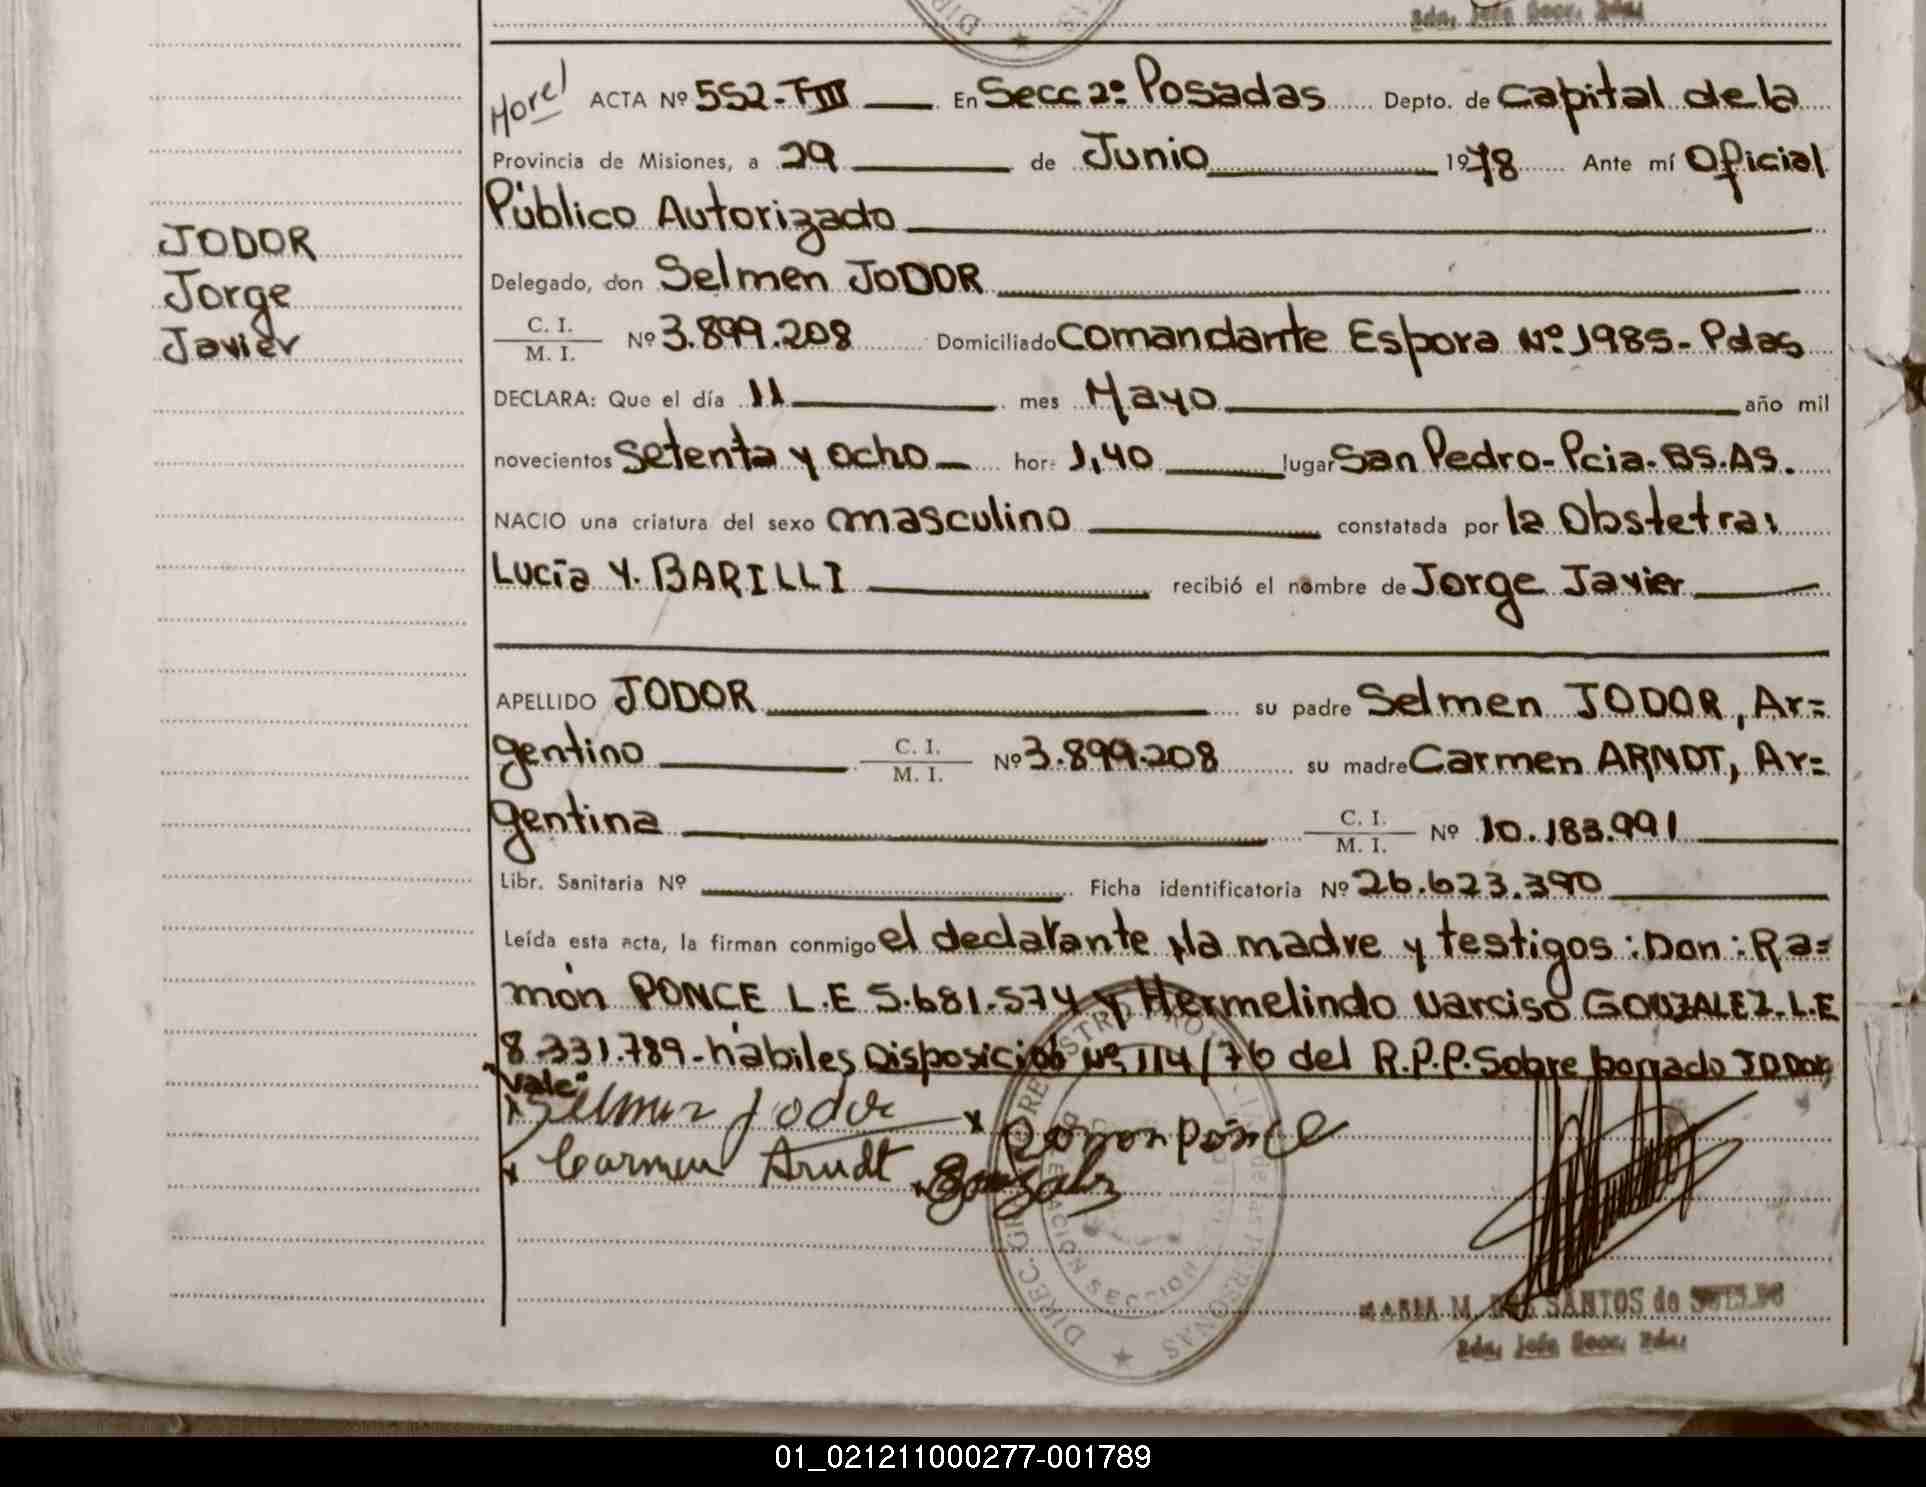 Bdo. Jefe Secc. Bda.
ACTA Nº 552-TIII En Secc 2º Posadas Depto. de Capital de la
Provincia de Misiones, a 29 de Junio 1978 Ante mí Oficial
Público Autorizado
JODOR
Delegado, don Selmen JODOR
Jorge
C. I.
M. I. Nº 3.899.208 Domiciliado Comandante Espora Nº 1985- Pdas
Javier
DECLARA: Que el día 11 mes Mayo año mil
novecientos setenta y ocho hora 1,40 lugar San Pedro-Pcia-BS.AS.
NACIO una criatura del sexo masculino constatada por la Obstetra:
Lucía Y. BARILLI recibió el nombre de Jorge Javier
APELLIDO JODOR su padre Selmen JODOR, Ar=
gentino C. I.
M. I. Nº 3.899.208 su madre Carmen ARNDT, Ar=
gentina C. I.
M. I. Nº 10.183.991
Libr. Sanitaria Nº Ficha identificatoria Nº 26.623.390
Leída esta acta, la firman conmigo el declarante, la madre y testigos: Don: Ra=
món PONCE L.E 5.681.574 y Hermelindo Narciso GONZALEZ-L.E
8.331.789-hábiles Disposición Nº 114/76 del R.P.P. Sobre borrado JODOR,
"Vale"
Selmen Jodor Ramon ponce
Carmen Arndt Gonzalez
MARIA M. DOS SANTOS de
01_021211000277-001789